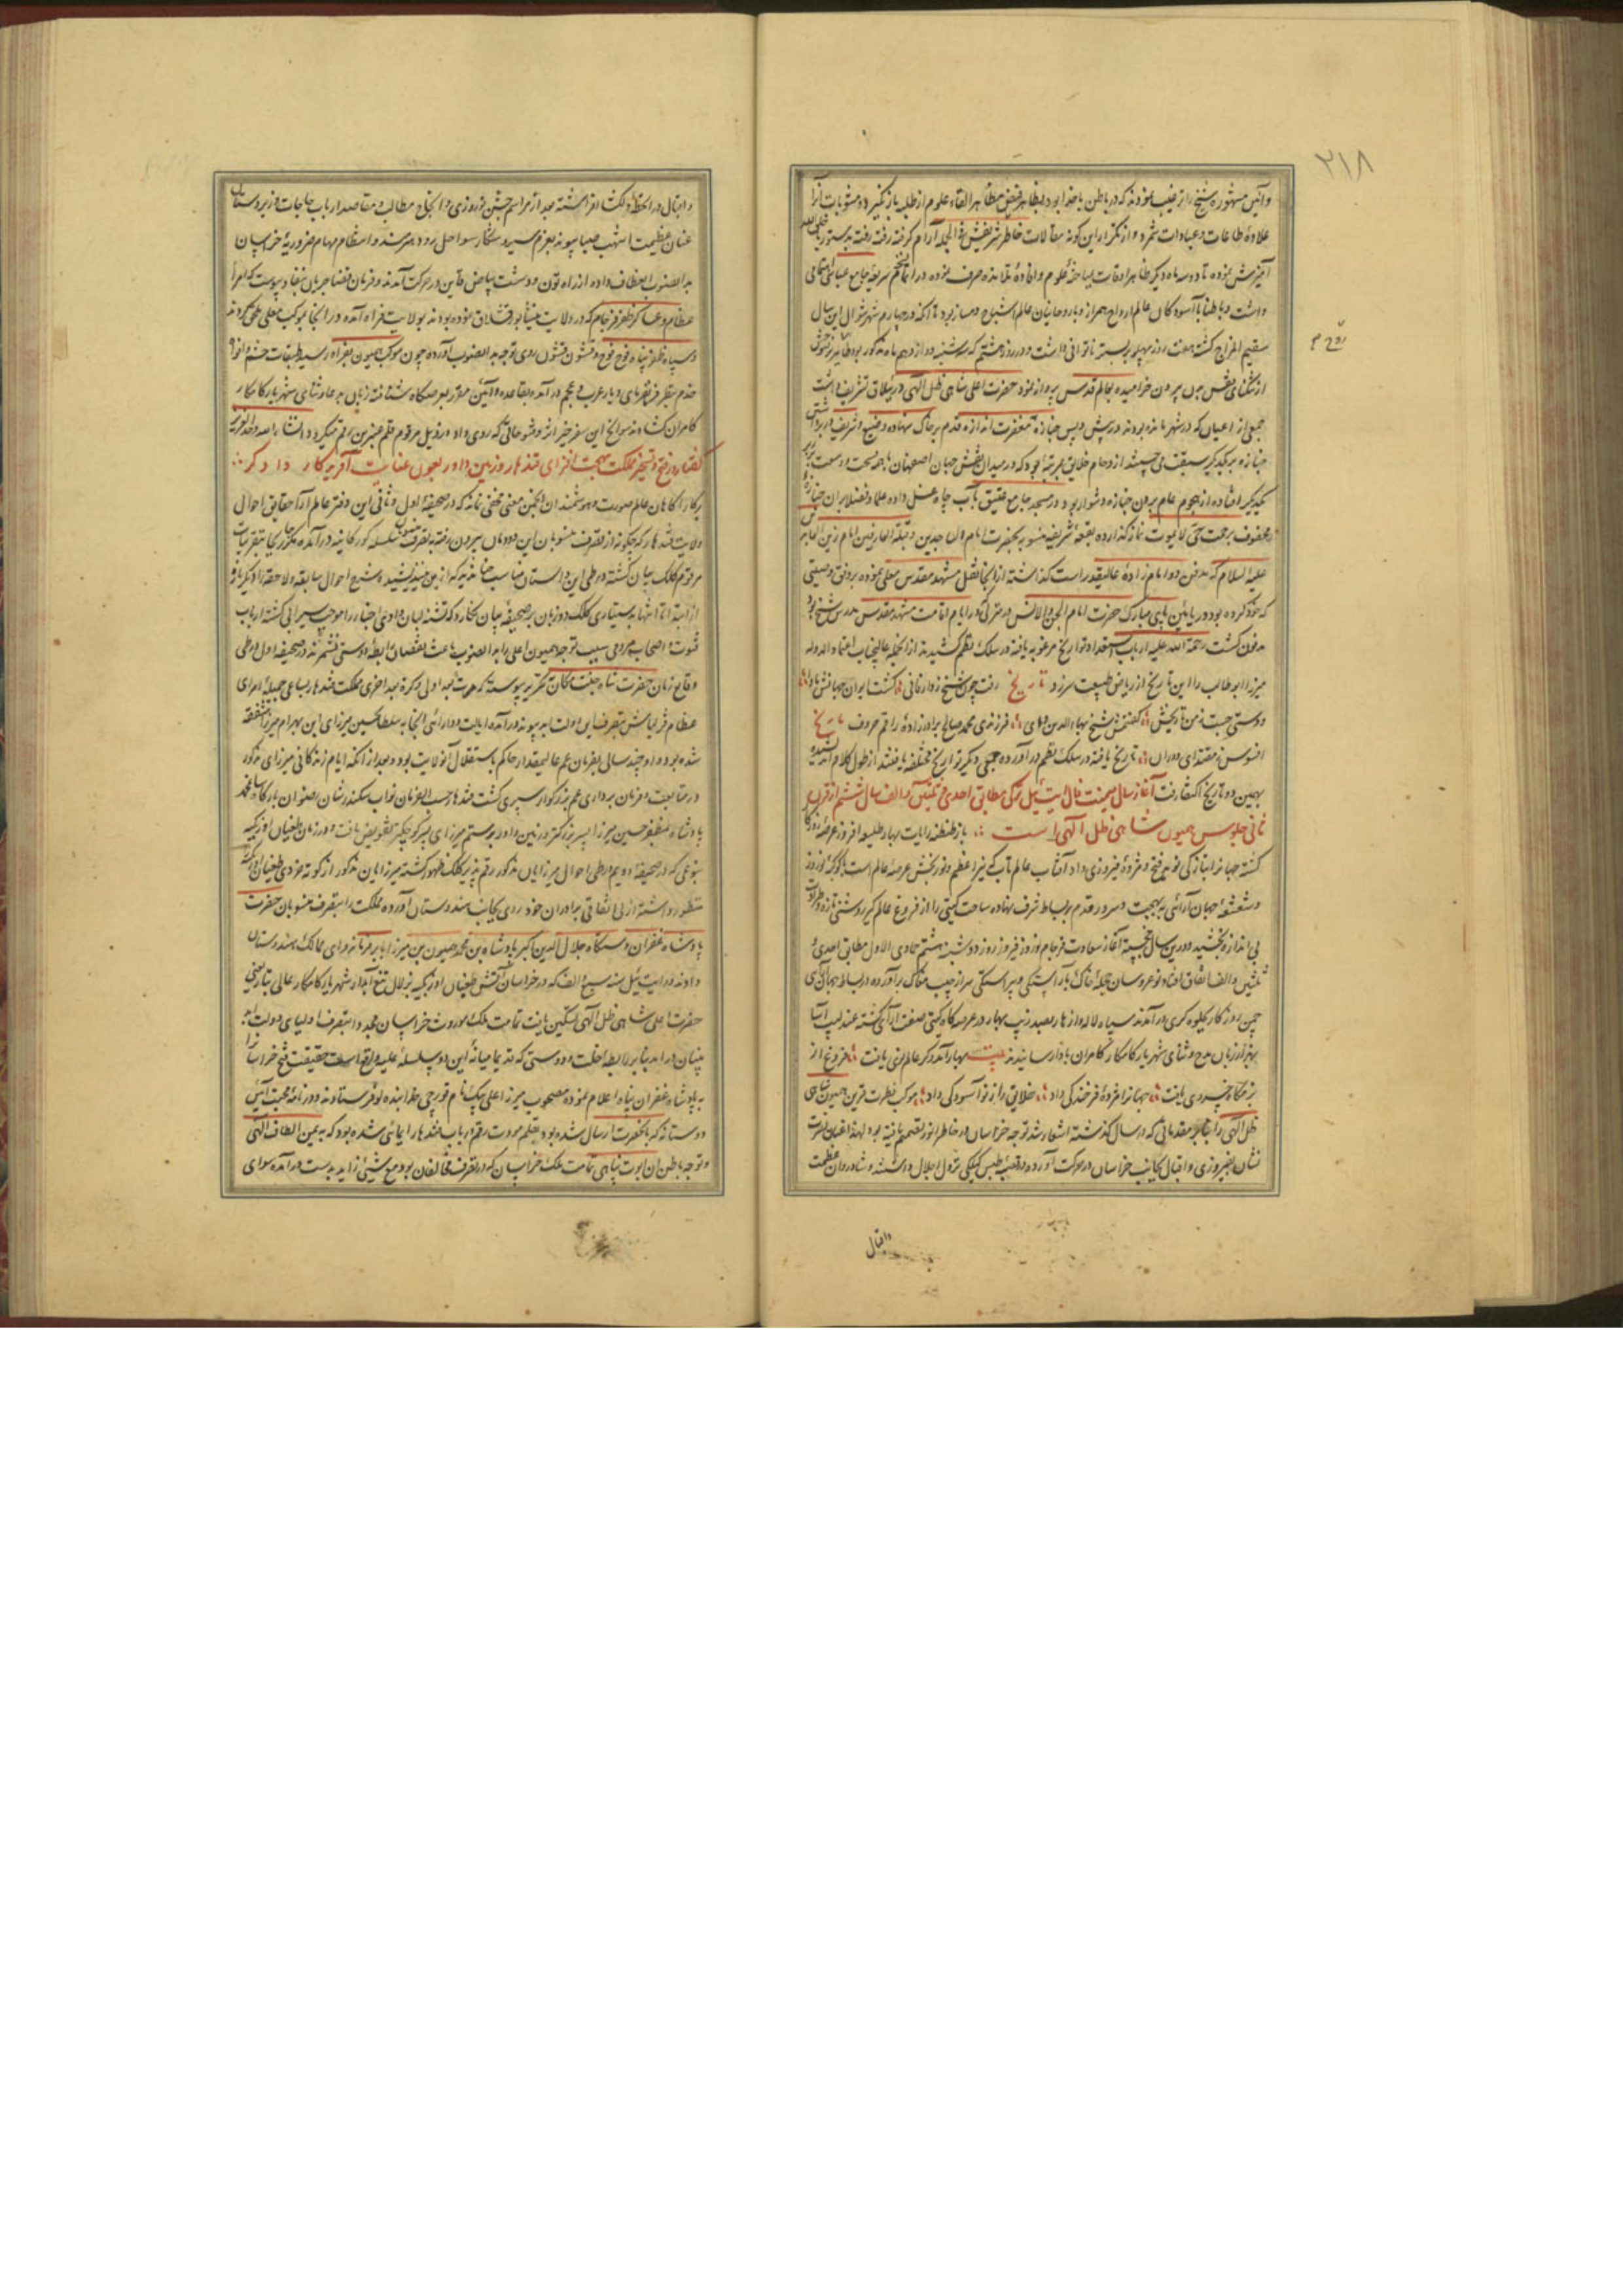 ۲۱۸
علاوهٔ طاعات و عبادات شمرد و از تکرار این گونه مقالات خاطر شریفش فی الجمله آرام گرفته رفته رفته بدستور
آمیزش نموده تا دو سه ماه دیگر ظاهر اوقات بمباحثهٔ علوم و افادهٔ تلامذه صرف نموده در اتمام جامع عباسی
داشت و باطنا با آسودگان عالم ارواح همراز و با روحانیان عالم اشباح دمساز بود تا آنکه در چهارم شهر شوال این سال
سقیم المزاج گشته هفت روز پهلو بر بستر ناتوانی داشت و در روز هشتم که سه شنبه دوازدهم ماه مذکور بود
از تنگنای قفس بدن بیرون خرامیده بعالم قدس پرواز نمود حضرت اعلی شاهی ظل اللهی در ییلاق تشریف داشت
جمعی از اعیان که در شهر مانده بودند در پیش و پس جنازهٔ مغفرت اندازه قدم بر خاک نهاده وضیع و شریف در برداشتن
جنازه بر یکدیگر سبقت می جستند ازدحام خلایق بمرتبهٔ بود که در میدان نقش جهان اصفهان با همه فسحت و وسعت بر زبر
یکدیگر افتاده از هجوم عام بردن جنازه دشوار بود و در مسجد جامع عتیق بآب چاه غسل داده علما و فضلا بر آن جنازهٔ
محفوف برحمت حی لایموت نماز گذارده ببقعهٔ شریفه منسوبه بحضرت امام الساجدین و قبلة العارفین امام زین العابدین
علیه السلام که مدفن دو امام زادهٔ عالیقدر است گذاشته از آنجا نقل مشهد مقدس معلی نموده بر وفق وصیتی
که خود کرده بود در پایین پای مبارک حضرت امام الجن و الانس در منزلی که در ایام اقامت مشهد مقدس مدرس شیخ بود
مدفون گشت رحمة الله علیه ارباب استعداد تواریخ مرغوبه یافته در سلک نظم کشیدند از آنجمله عالیجناب اعتماد الدوله
میرزا ابو طالب را این تاریخ از ریاض طبیعت سر زد تاریخ رفت چون شیخ ز دار فانی گشت ایوان جنانش ماوا
دوستی جست ز من تاریخش گفتمش شیخ بهاء الدین وای فرزندی محمد صالح برادرزادهٔ راقم حروف تاریخ
افسوس ز مقتدای دوران تاریخ یافته در سلک نظم در آورده جمعی دیگر تواریخ مختلفه یافتند از طول کلام اندیشیده
بهمین دو تاریخ اکتفا رفت آغاز سال میمنت فال ایت ئیل ترکی مطابق احدی و ثلثین و الف سال ششم از قرن
ثانی جلوس همیون شاهی ظل اللهی است باز طنطنهٔ رایات بهار طلیعه افروز عرصهٔ روزگار
گشته جهانرا بتازگی نوید فتح و مژدهٔ فیروزی داد آفتاب عالم تاب که نیر اعظم و نوربخش عرصهٔ عالم است
و شعشعهٔ جهان آرائی به بهجت و سرور قدم بر بساط شرف نهاده ساحت گیتی را از فروغ عالم گیر روشنی تازه و طراوت
بی اندازه بخشید و درین سال خجسته آغاز سعادت فرجام نوروز فیروز روز دوشنبه هشتم جمادی الاول مطابق احدی و
ثلثین و الف اتفاق افتاد نوعروسان حجلهٔ خاک بآراستگی و پیراستگی سر از جیب مغاک برآورده در بساط جهان آرای
چمن روزگار بجلوه گری درآمدند سپاه لاله و ازهار بصد زیب بهار در عرصه گاه گیتی صف آرای گشته عندلیب آسا
بهزار زبان مدح و ثنای شهریار کامکار کامران بادا رسانیدند بیت بهار آمد و گر عالم نوی یافت فروغ از
بزمگاه خسروی یافت جهانرا مژدهٔ فرخندگی داد خلایق را ز نو آسودگی داد موکب نصرت قرین همیون شاهی
ظل اللهی را بنابر مقدماتی که در سال گذشته اشعار شد توجه خراسان در خاطر انور تصمیم یافته بود لهذا عنان نصرت
نشان بفیروزی و اقبال بجانب خراسان در حرکت آورده در قصبهٔ طبس گیلکی نزول اجلال داشتند و شادروان عظمت
و اقبال
و اقبال در آن خطهٔ دلگشا افراشته بعد از مراسم جشن نوروزی و انجاح مطالب و مقاصد ارباب حاجات
عنان عزیمت اشهب صباپیوند بعزم سیر و شکار سواحل رود هیرمند و انتظام مهام ضروریهٔ خراسان
بدانصوب انعطاف داده از راه تون و دشت بیاض و قاین در حرکت آمدند و فرمان قضا جریان بنفاذ پیوست که امرای
عظام و عساکر ظفر فرجام که در ولایت نیشابور قشلاق نموده بودند بولایت فراه آمده در آنجا بموکب معلی ملحق گردند
و سپاه ظفر پناه فوج فوج و قشون قشون روی توجه بدانصوب آورده چون موکب همیون بفراه رسید طبقات حشم و
کامران گشادند سوانح این سفر خیر اثر و فتوحاتی که روی داد در ذیل مرقوم قلم عنبرین رقم میگردد انشاء الله وحده العزیز
گفتار در فتح و تسخیر مملکت بهجت افزای قندهار و زمین داور بعون عنایت آفریدگار دادگر
بر کارآگاهان عالم صورت و هوشمندان انجمن معنی مخفی نماند که در صحیفهٔ اول و ثانی این دفتر عالم آرا حقایق احوال
ولایت قندهار که چگونه از تصرف منسوبان این دودمان بیرون رفته بتصرف سلسله گورکانیه درآمده مکرر بجا بتقریبات
مرقوم کلک بیان گشته در طی این داستان مناسب چنان دید که از من شنیده شد و شرح احوال سابقه و لاحقه را دیگر باره
از ابتدا تا انتها بدستیاری کلک دو زبان بر صحیفهٔ بیان نگارد که تشنه لبان وادی اخبار را موجب سیرابی گشته ارباب
فتوت و اصحاب مروت سبب توجه همیون اعلی را بدانصوب باعث نقصان رابطهٔ دوستی نشمرند در صحیفه اول در طی
وقایع زمان حضرت شاه جنت مکان تحریر پیوسته که مرتبهٔ اولی و کرة بعد اخری مملکت قندهار بمساعی جمیلهٔ امرای
عظام قزلباش بتصرف این دولت ابد پیوند درآمده ایالت و دارائی آنجا بسلطان حسین میرزای ابن بهرام میرزا شفقت
شده بود و او چند سالی بفرمان عم عالیمقدار حاکم باستقلال آن ولایت بود و بعد از آنکه ایام زندگانی میرزای مذکور
در متابعت و فرمان برداری عم بزرگوار سپری گشت قندهار حسب الفرمان نواب سکندر شان رضوان بارگاه سلطان محمد
پادشاه بمظفر حسین میرزا پسر بزرگتر و زمین داور برستم میرزای پسر کوچکتر تفویض یافت و در زمان طغیان اوزبکیه
بنوعی که در صحیفهٔ دویم در طی احوال میرزایان مذکور رقم پذیر کلک ظهور گشته میرزایان مذکور
منظور داشته از بی اتفاقی برادران خود روی بجانب هندوستان آورده مملکت را بتصرف منسوبان حضرت
پادشاه غفران دستگاه جلال الدین اکبر پادشاه بن محمد همیون بن میرزا بابر فرمانروای ممالک هندوستان
دادند و در ایت ئیل سنه سبع و الف که در خراسان آتش طغیان اوزبکیه بزلال تیغ آبدار شهریار کامکار عالی تبار یعنی
حضرت اعلی شاهی ظل اللهی تسکین یافت و تمامت ملک موروث خراسان مجددا بتصرف اولیای دولت ابد
بنیان درآمد بنابر رابطه اخلت و دوستی که قدیما میانهٔ این دو سلسله علیه واقع است حقیقت فتح خراسان را
به پادشاه غفران پناه اعلام نموده مصحوب میرزا علی بیک نام قورچی خدابنده لو فرستادند و در نامهٔ محبت آئین
دوستانه که بآنحضرت ارسال شده بود بقلم مودت رقم در باب قندهار ایمائی شده بود که به یمن الطاف اللهی
و توجه باطن آن ابوت پناهی تمامت ملک خراسان که در تصرف مخالفان بود مع شیئی زاید بدست درآمده سوای